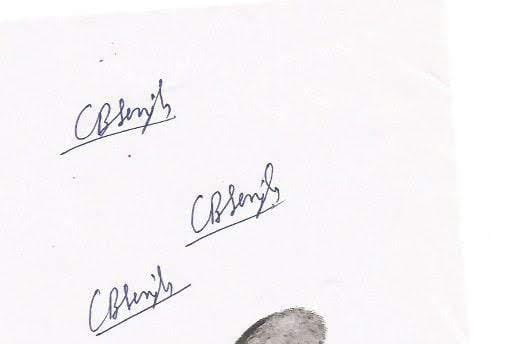 CBSingh
CBSingh
CBSingh